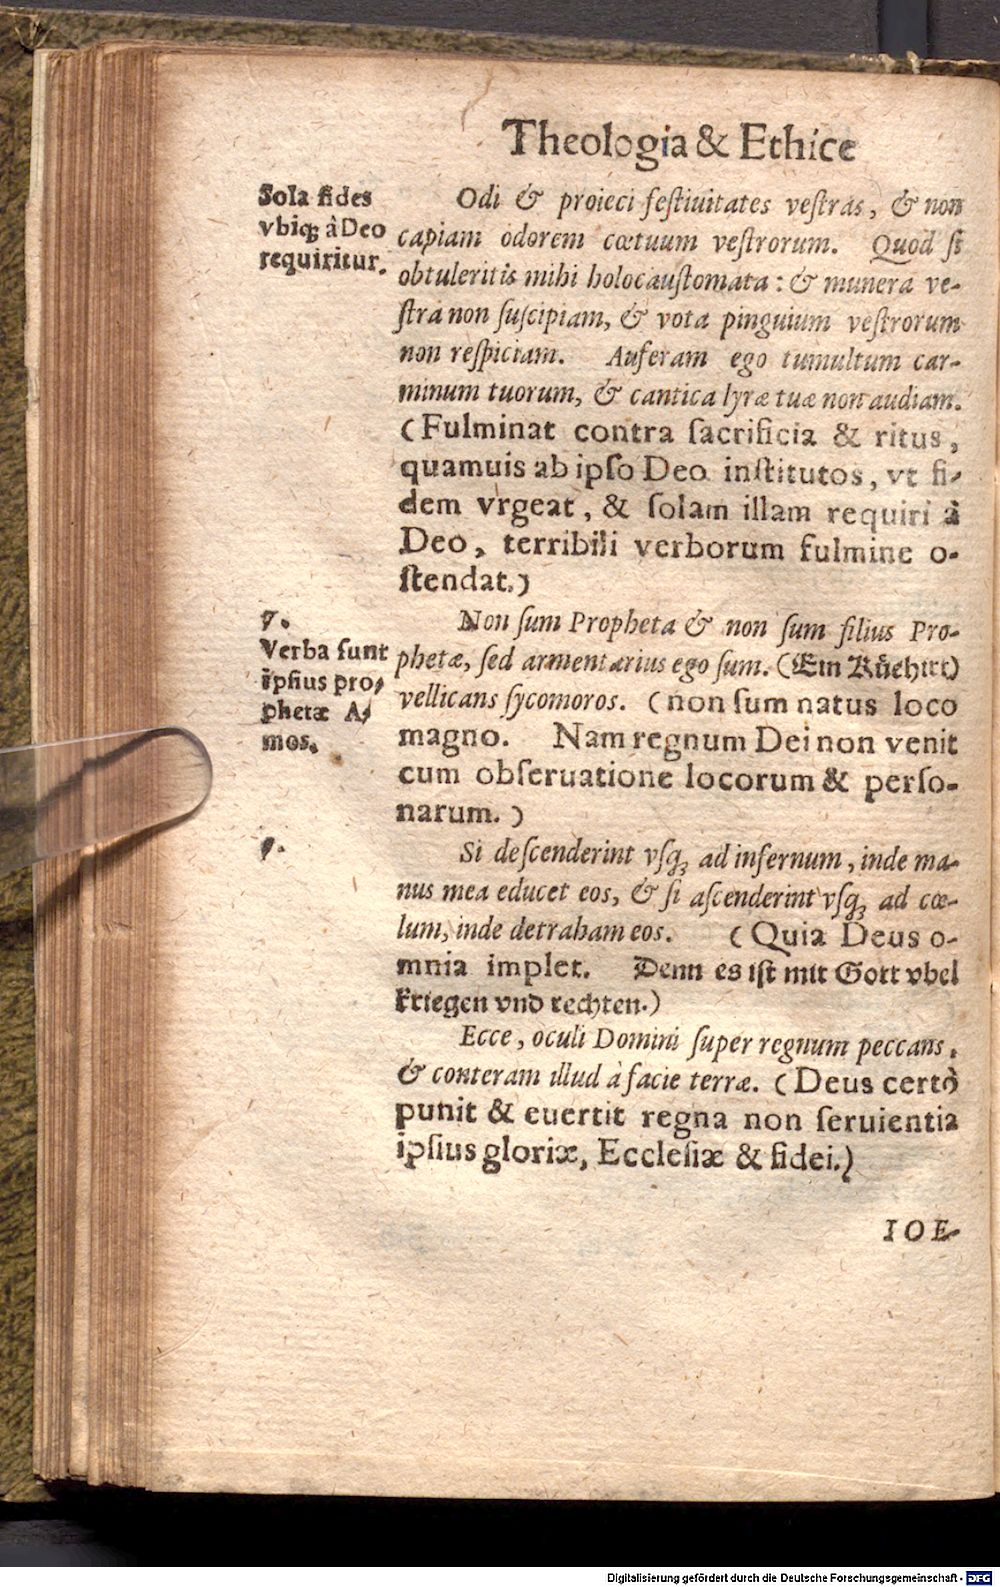 Theologia & Ethice
Sola fides
vbiq; â Deo
requiritur.
Odi & proieci feſtiuitates veſtras, & non
capiam odorem cœtuum veſtrorum. Quod ſi
obtuleritis mihi holocauſtomata: & munera ve-
ſtra non ſuſcipiam, & vota pinguium veſtrorum
non reſpiciam. Auferam ego tumultum car-
minum tuorum, & cantica lyræ tuæ non audiam.
(Fulminat contra ſacrificia & ritus,
quamuis ab ipſo Deo inſtitutos, vt fi-
dem vrgeat, & ſolam illam requiri à
Deo, terribili verborum fulmine o-
ſtendat.)
7.
Verba ſunt
ipſius pro-
phetæ A-
mos.
Non ſum Propheta & non ſum filius Pro-
phetæ, ſed armentarius ego ſum. (Ein Kűehirt)
vellicans ſycomoros. (non ſum natus loco
magno. Nam regnum Dei non venit
cum obſeruatione locorum & perſo-
narum.)
9.
Si deſcenderint vſq; ad infernum, inde ma-
nus mea educet eos, & ſi aſcenderint vſq; ad cœ-
lum, inde detraham eos. (Quia Deus o-
mnia implet. Denn es iſt mit Gott vbel
kriegen vnd rechten.)
Ecce, oculi Domini ſuper regnum peccans,
& conteram illud à facie terræ. (Deus certò
punit & euertit regna non ſeruientia
ipſius gloriæ, Eccleſiæ & fidei.)
IOE-
Digitalisierung gefördert durch die Deutsche Forschungsgemeinschaft - DFG